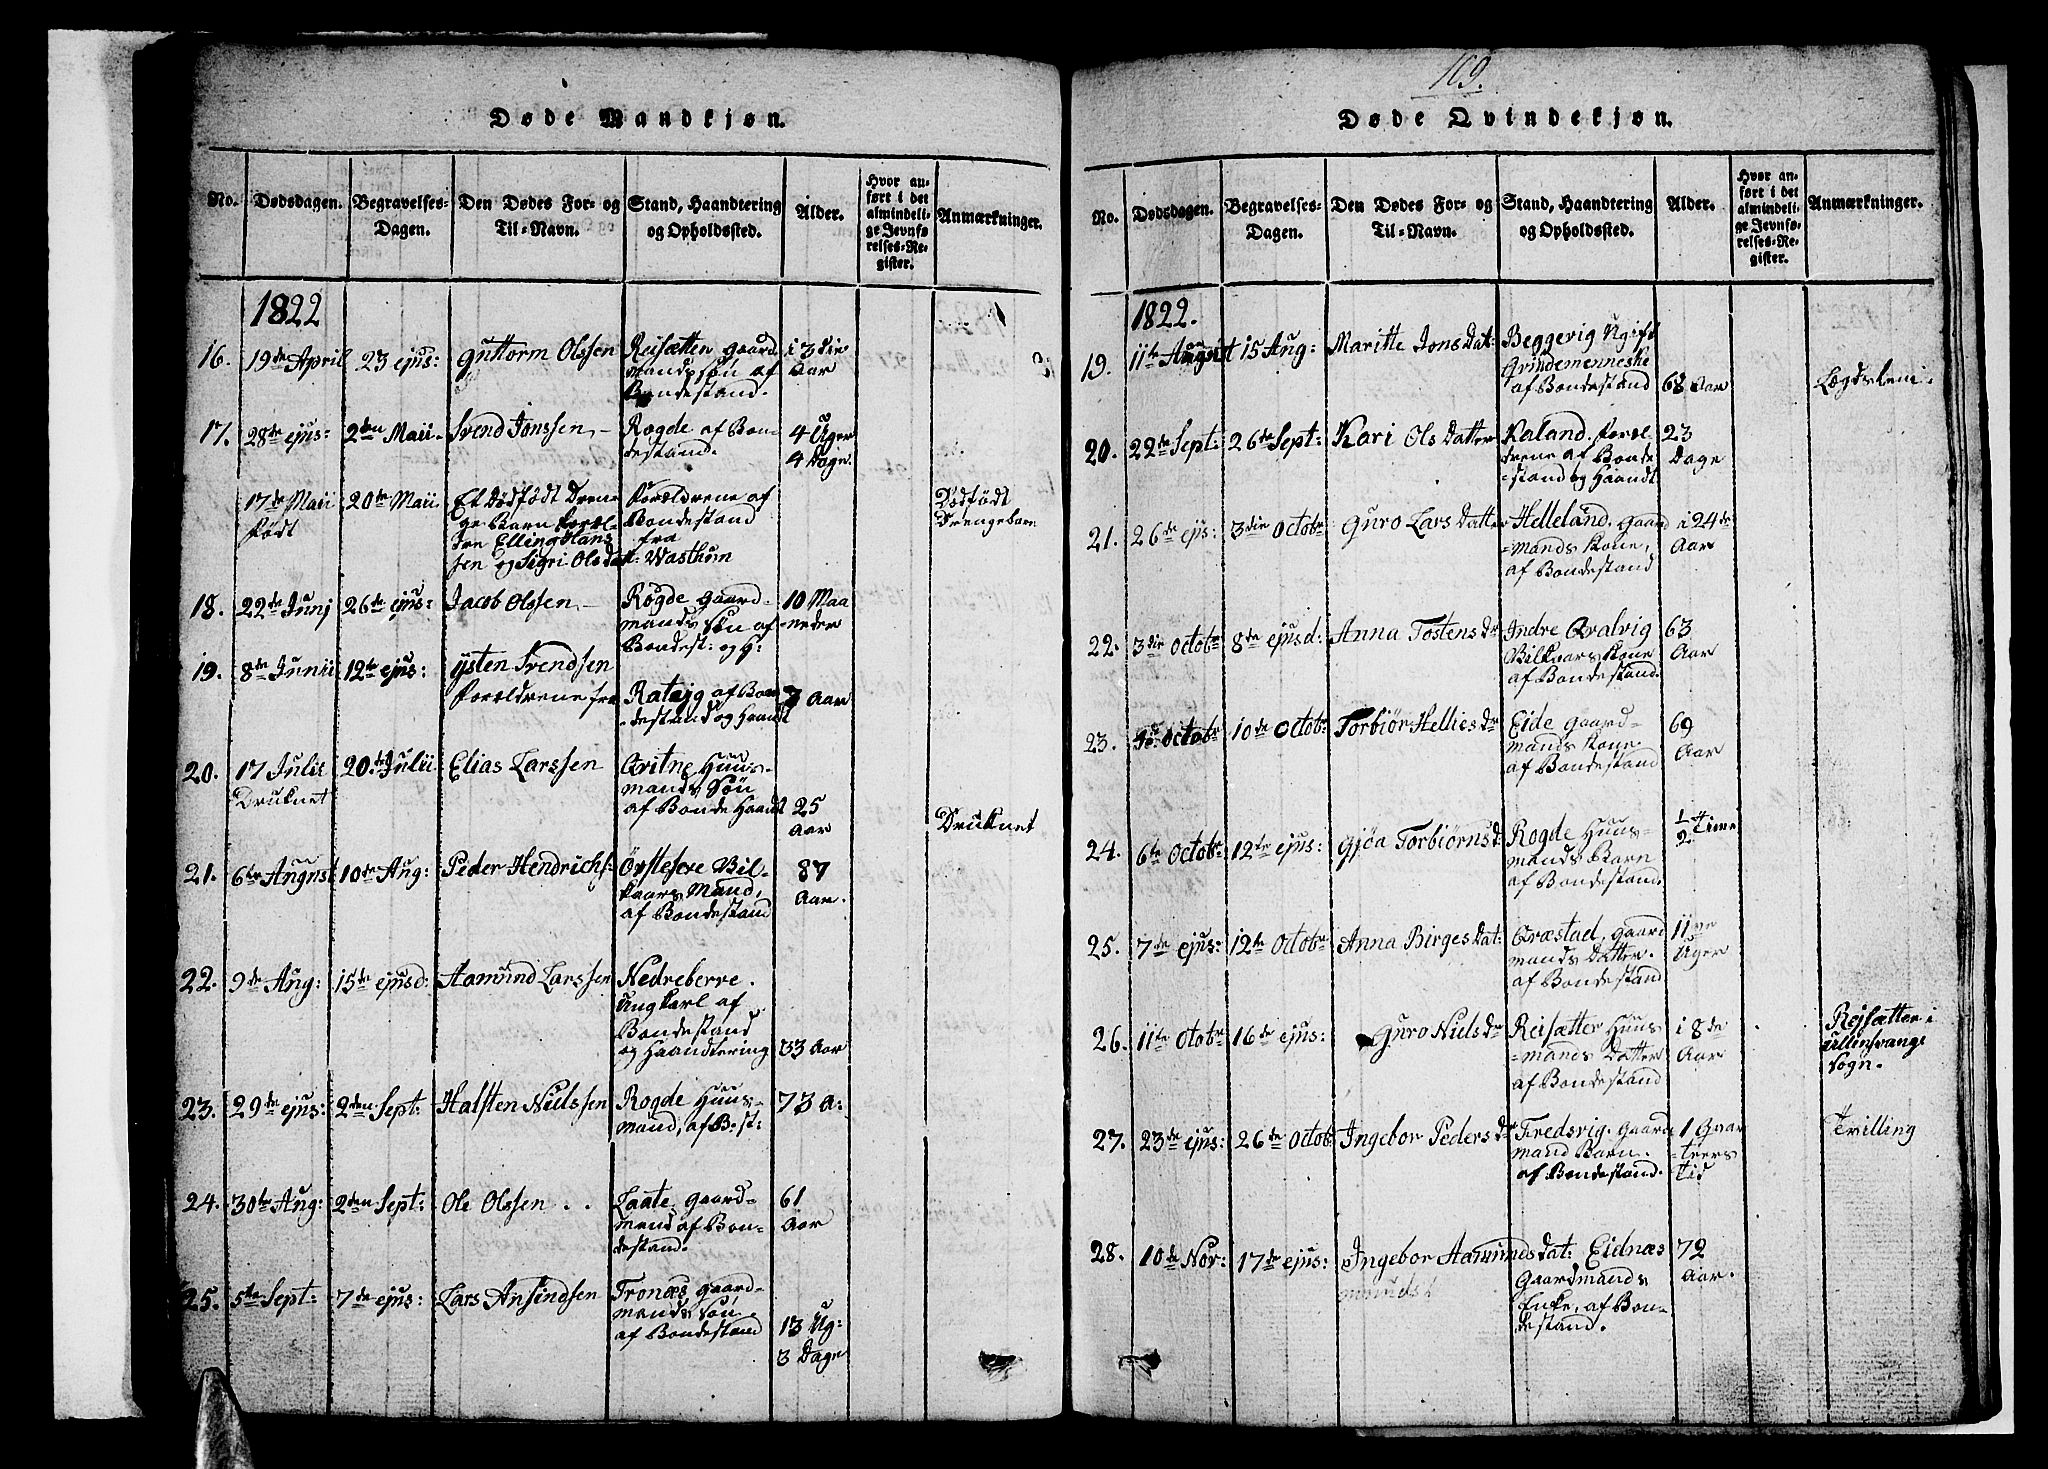 Døde Mandkjøn.
No.
Dødsdagen.
Begravelses-
Dagen.
Den Dødes For- og
Til-Navn.
Stand, Haandtering
og Opholdssted.
Alder.
Hvor an-
ført i det
almindeli-
ge Jevnfø-
relses-Re-
gister.
Anmærkninger.
1822
16.
19de April
23 ejus:
Guttorm Olssen
Reisætten Gaard
mands søn af
Bondestand.
i 3die
Aar
17.
28de ejus:
2den Maii
Svend Jonssen
Rogde af Bon-
destand.
4 Uger
4 Dage.
17de Maii
født
20de Maii
Et dødfødt Dren
ge Barn Foræl-
dre Elling Hans
sen og Sigri Olsdat:
Forældrene af
Bondestand
fra
Wasthun
Dødfødt
Drengebarn
18.
22de Junj
26de ejus:
Jacob Olssen
Rogde Gaard-
mands Søn af
Bondest: og H:
10 Maa
neder
19.
8de Junii
12te ejus:
Ysten Svendsen
Forældrene fra
Rateig af Bon
destand og Haandt
7 Aar
20.
17 Julii
Druknet
20de Julii
Elias Larssen
Qvitne Huus-
mands Søn
af Bonde Haandt
25
Aar
Druknet
21.
6te August
10de Aug:
Peder Hendrichs
Vil-
kaars Mand,
af Bondestand
87
Aar.
22.
9de Aug:
15de ejusd:
Aamund Larssen
Nedreberre.
Ungkarl af
Bondestand
og Haandtering
33 Aar
23.
29de ejus:
2den Sept:
Halsten Nielssen
Rogde Huus-
mand, af B: st:
73 A:
24.
30te Aug:
2den Sept:
Ole Olssen
Laate, Gaard-
mand af Bon-
destand.
61
Aar
25.
5te Sept:
7de ejus:
Lars Ansindsen
Tronæs, Gaard-
mands søn.
af Bondestand
13 Ug:
3 Dage
109.
Døde Qvindekjøn.
No.
Dødsdagen.
Begravelses-
Dagen.
Den Dødes For- og
Til-Navn.
Stand, Haandtering
og Opholdssted.
Alder.
Hvor an-
ført i det
almindeli-
ge Jevnfø-
relses-Re-
gister.
Anmærkninger.
1822.
19.
11te August
15 Aug:
Maritte Jons Dat:
Beggevig Ugift
Qvindemenneske
af Bondestand
68 Aar
Lægdslem.
20.
22de Sept:
26de Sept:
Kari Ols Datter
Kaland. Foræl-
drene af Bonde
stand og Haandt
23
Dage
21.
26de ejs:
3die Octobr
Guro Lars Datter
Helleland. Gaard
mands Kone,
af Bondestand
i 24de
Aar
22.
3die Octobr
8de ejusd:
Anna Tostens dr
Indre Qvalvig
Vilkaars Kone
af Bondestand.
63
Aar
23.
Octobr
10de Octobr
Torbiør Hellies dr
Eide Gaard-
mands Kone
af Bondestand
69
Aar
24.
6te Octobr
12te ejus:
Gjøa Torbiørns d:
Rogde Huus-
mands Barn
af Bondestand.
1/2 Time
25.
7de ejus:
12te Octobr
Anna Birges Dat:
Qvæstad, Gaard
mands Datter.
af Bondestand
Uger
26.
11te Otobr
16de ejus:
Guro Niels dr
Reisætter Huus
mands Datter
af Bondestand
i 8de
Aar
Rejsætter i
Ullensvangs
Sogn.
27.
23de ejus:
26de Octob
Ingebor Peders dr
Fredsvig. Gaard
mand Barn.
af Bondestand.
1 Qvar
teers
Tid
Tvilling
28.
10de Nov:
17de ejus:
Ingebor Aamunds dat:
Eidnæs
Gaardmands
Enke, af Bon-
destand.
72
Aar.